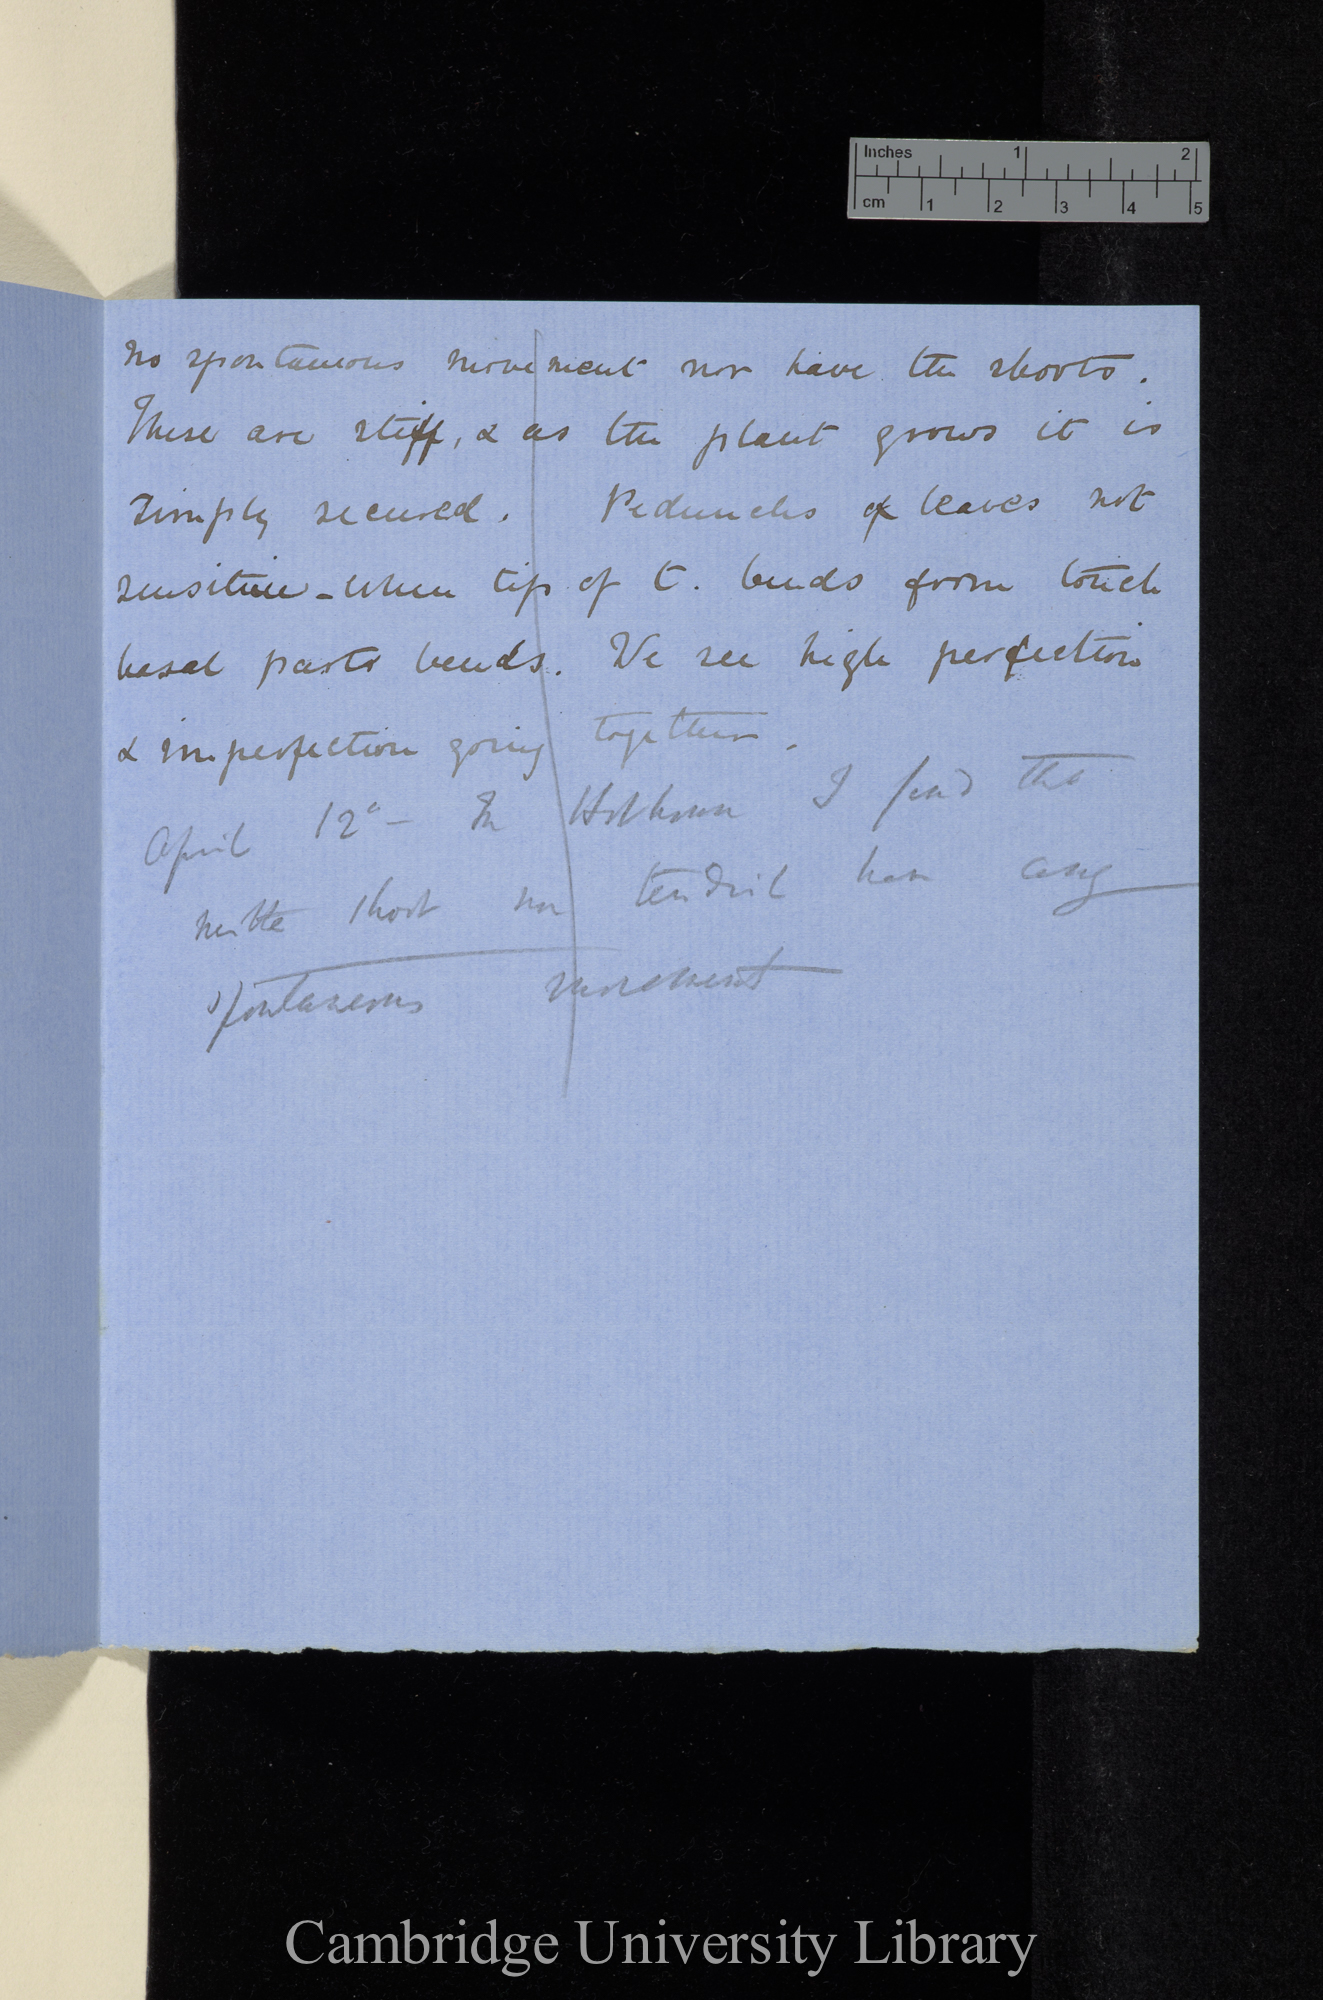 Inches 1 2
cm 1 2 3 4 5
no spontaneous movement nor have the shoots.
These are stiff, & as the plant grows it is
simply secured. Peduncles of leaves not
sensitive - When tip of t. bends from touch
basal parts bends. We see high perfection
& imperfection going together.
April 12° - In Hothouse I find that
neither shoot nor tendril have any
spontaneous movement
Cambridge University Library